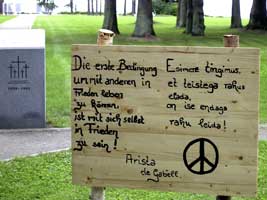 Die erste Bedingung
um mit anderen in
Frieden leben
zu können,
ist mit sich selbst
in Frieden
zu sein!
Esimene tingimus,
et teistega rahus
elada,
on ise endaga
rahu leida!
Arista
de Gabell.